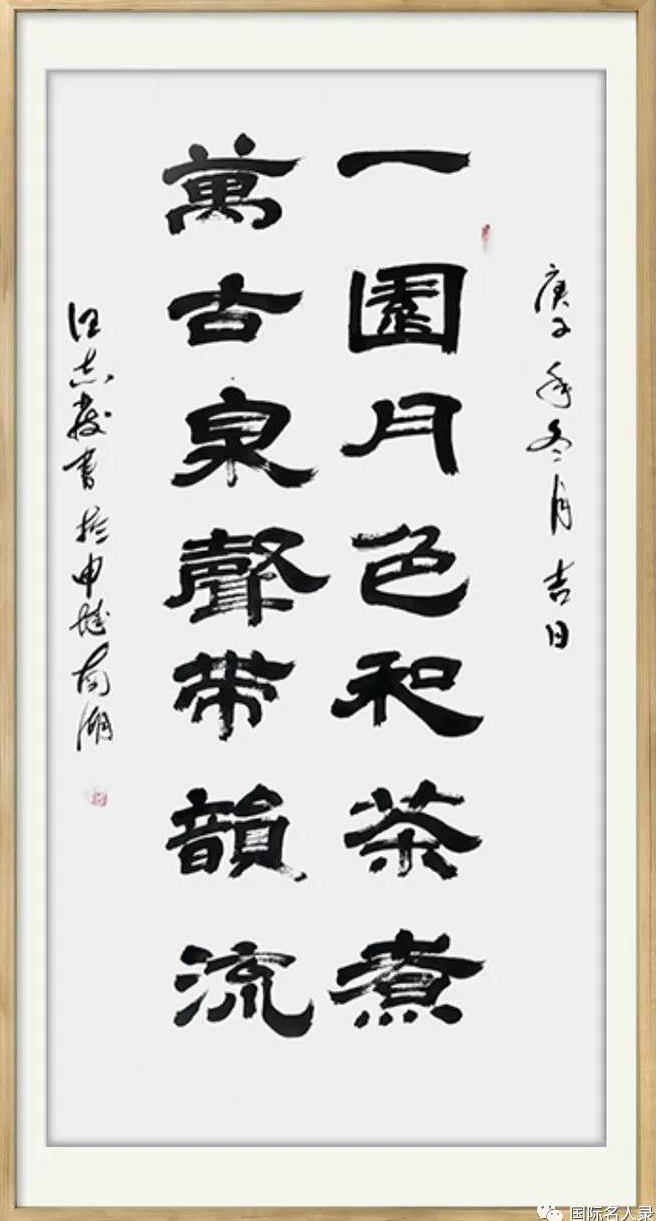 庚子年冬月吉日
一園月色和茶煮
萬古泉聲带韻流
汪志发書於申城南湖
国际名人录